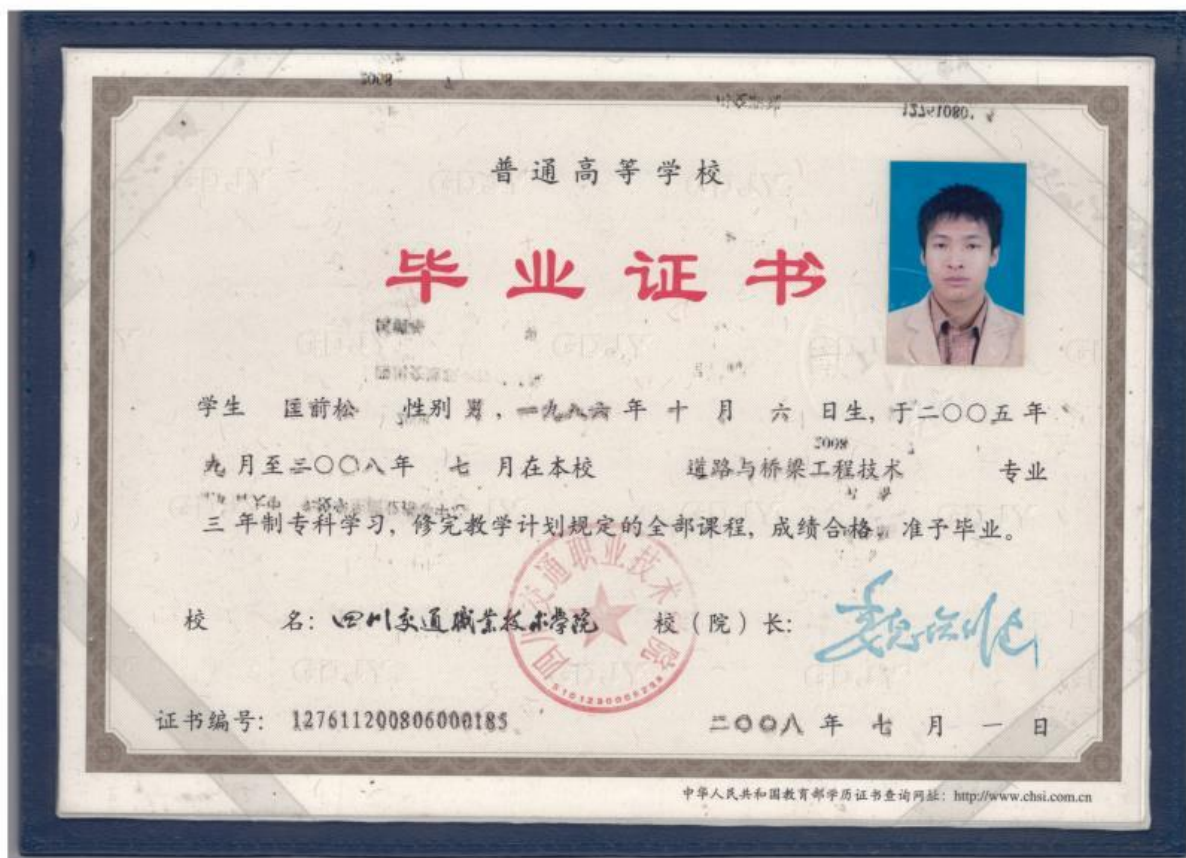 普通高等学校
毕业证书
学生 匡前松 性别 男，一九八六年 十 月 六 日生，于二〇〇五年
九 月至二〇〇八年 七 月在本校 道路与桥梁工程技术 专业
三 年制专科学习，修完教学计划规定的全部课程，成绩合格，准予毕业。
校 名：四川交通职业技术学院 校（院）长：
四川交通职业技术学院
证书编号：127611200806000185 二〇〇八 年 七 月 一 日
中华人民共和国教育部学历证书查询网址：http://www.chsi.com.cn